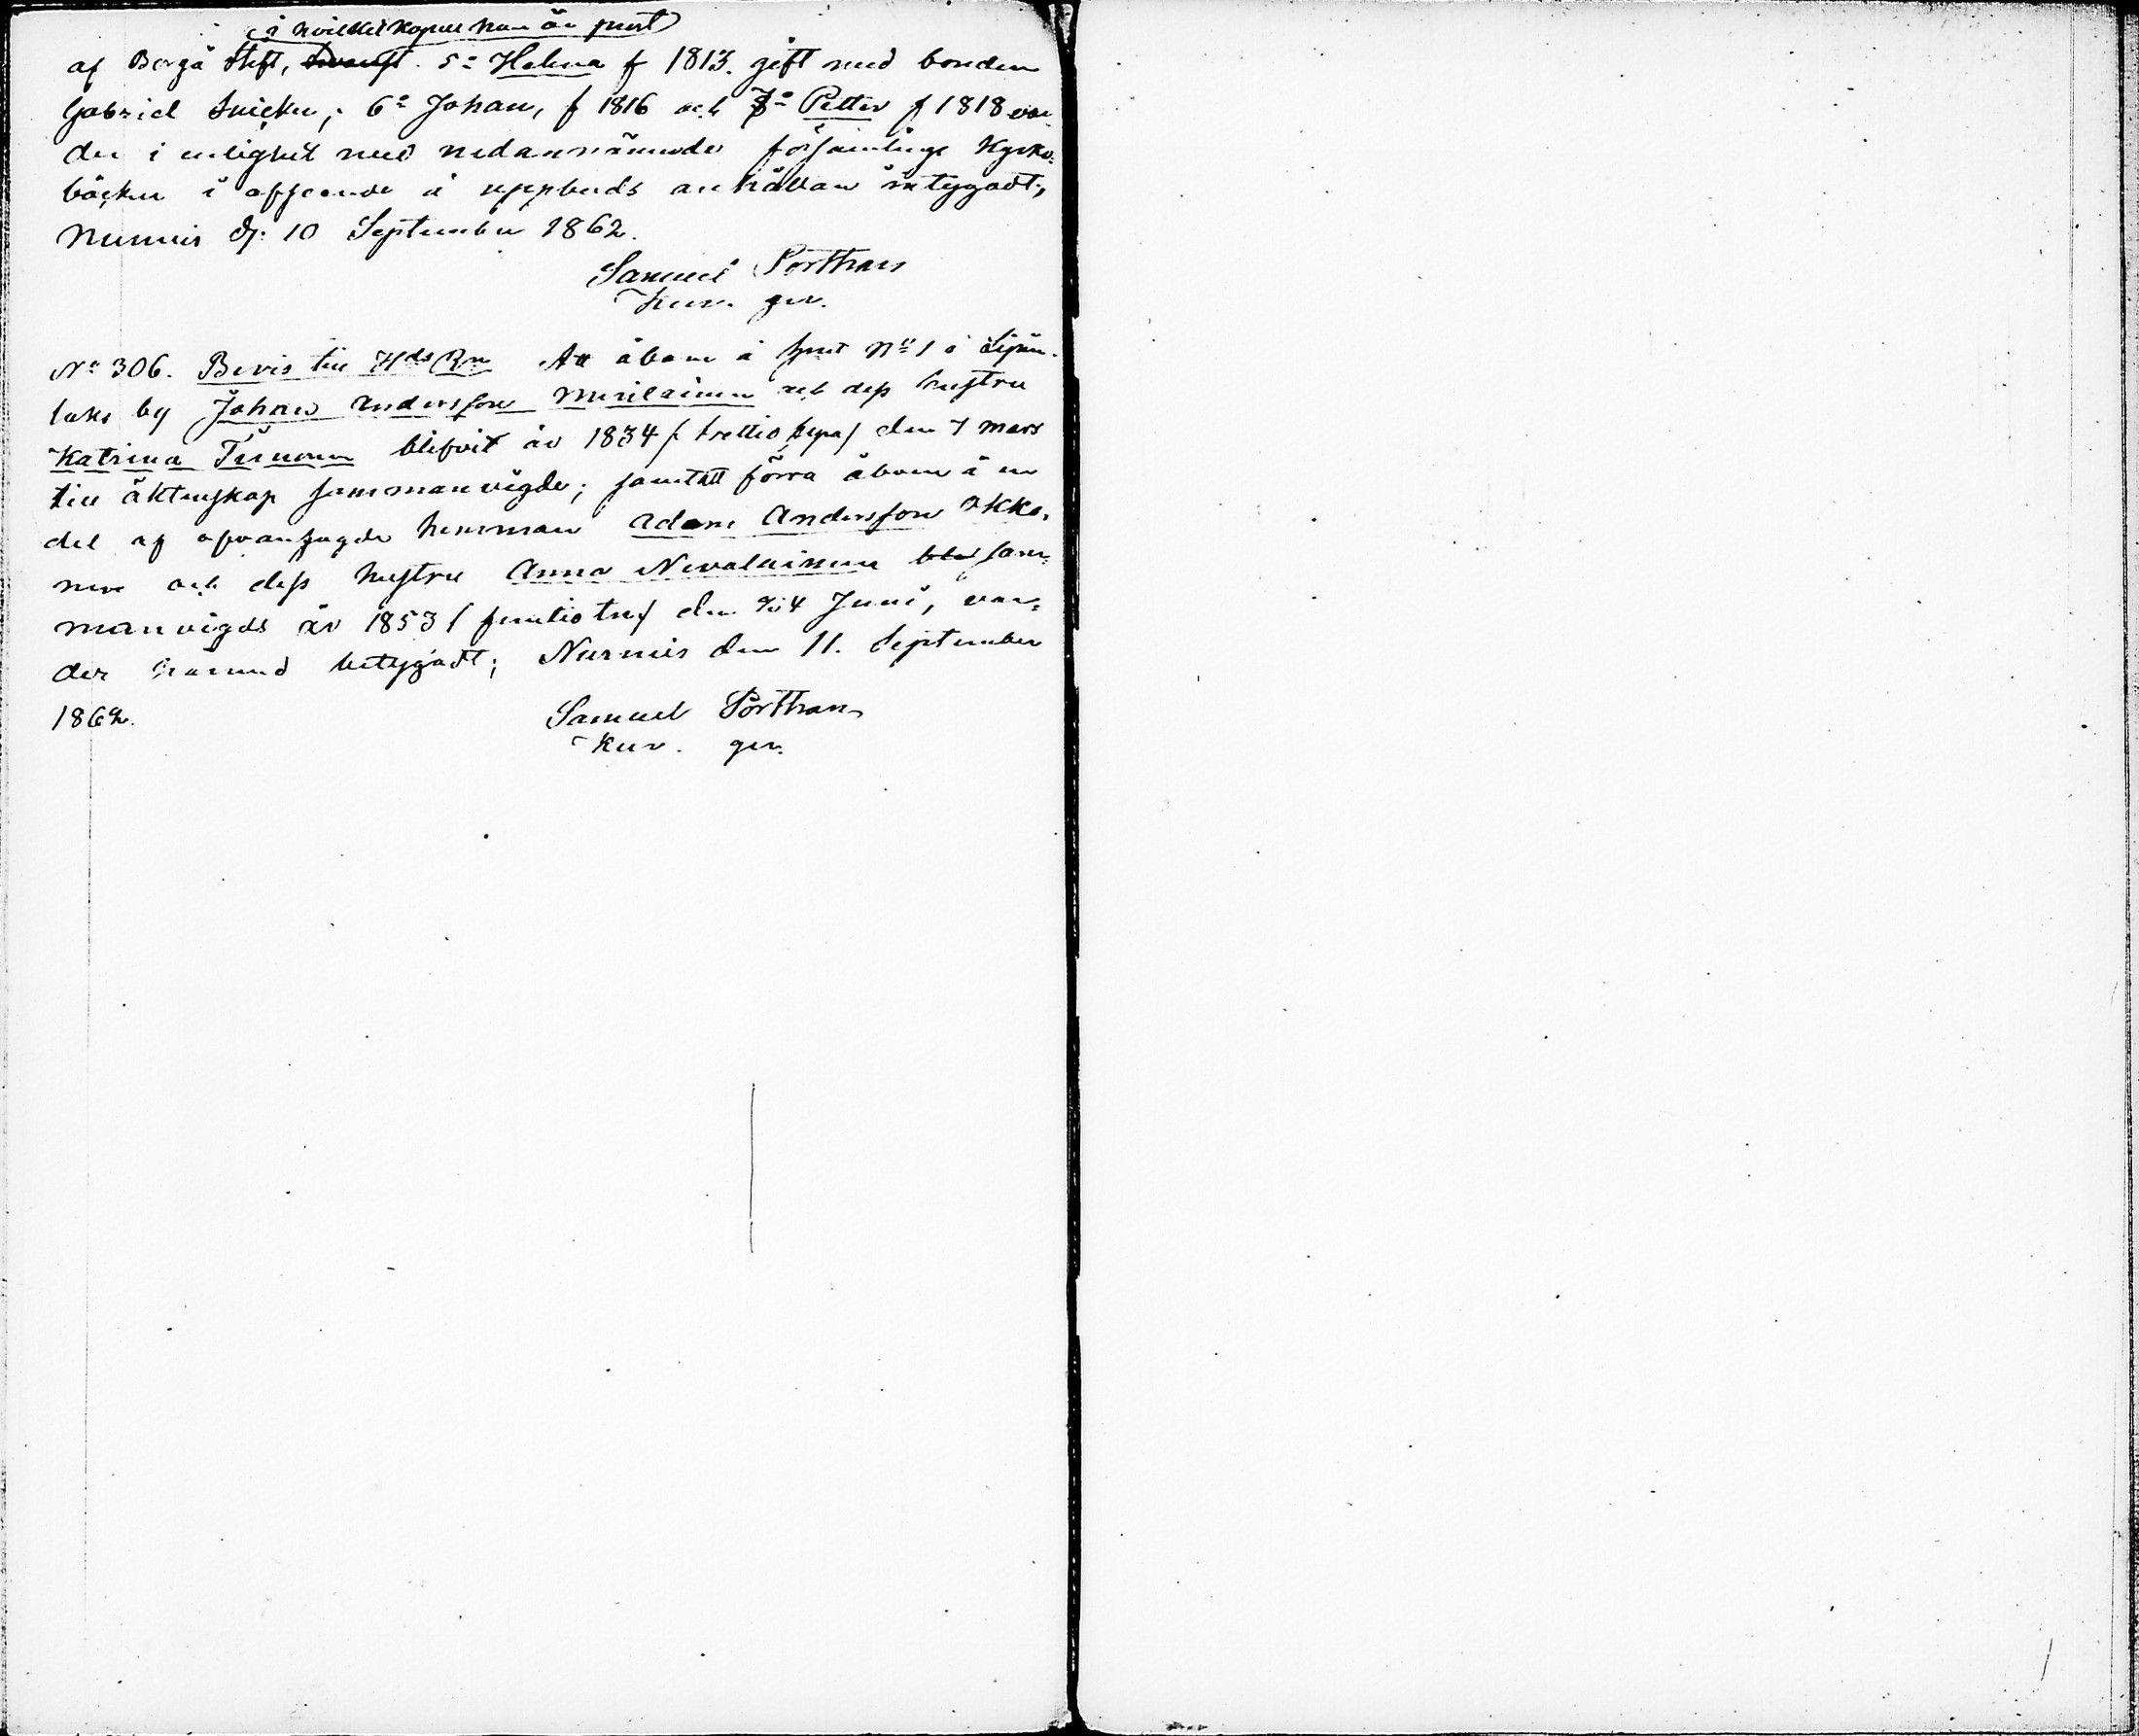 i hvilket kapell han är prest
af Borgå Stift, 5:o Helena f 1813. gift med bonden
Gabriel Snicker; 6:o Johan, f 1816 och 7:o Petter f 1818 var-
der i enlighet med nedannämnde församlings Kyrko-
böcker i afseende å uppbuds anhållan intygadt;
Nurmis d. 10 September 1862.
Samuel Porthan
Kur. ger.
No 306. Bevis till Hds Rn Att åboen å Hmt No 1 i Lipin-
laks by Johan Andersson Meriläinen och dess hustru
Katrina Turunen blifvit år 1834 / trettio fyra / den 7 Mars
till äktenskap sammanvigde; samt att förra åboen å en
del af ofvansagde hemman Adam Andersson Okko-
nen och dess hustru Anna Nevalainen sam-
manvigds år 1853 / femtio tre / den 24 Juni, var-
der härmed betygadt; Nurmis den 11. September
1862.
Samuel Porthan
Kur. ger.